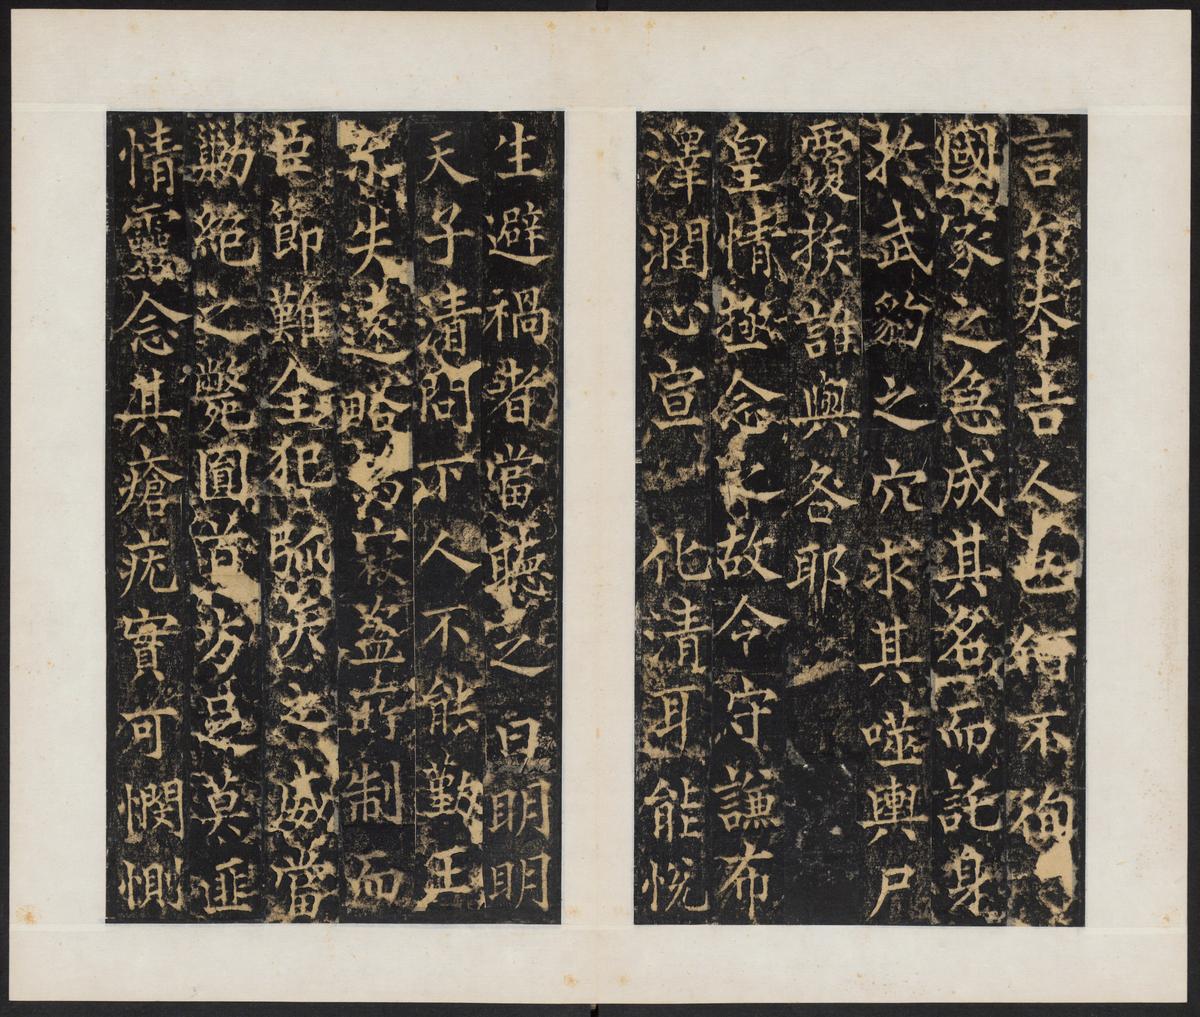 言尒本吉人也衒不徇
國家之急成其名而託身
於武豹之穴求其噬輿尸
覆族誰與咎耶
皇情亟念之故今守謙布
澤潤心宣化清耳能悅
生避禍者當聽之曰明明
天子清問下人不能勤王
亦失遠略為寇盜所制而
臣節難全犯脈矣之威當
勦絕之斃圓首方足莫匪
情靈念其瘡疣實可憫惻